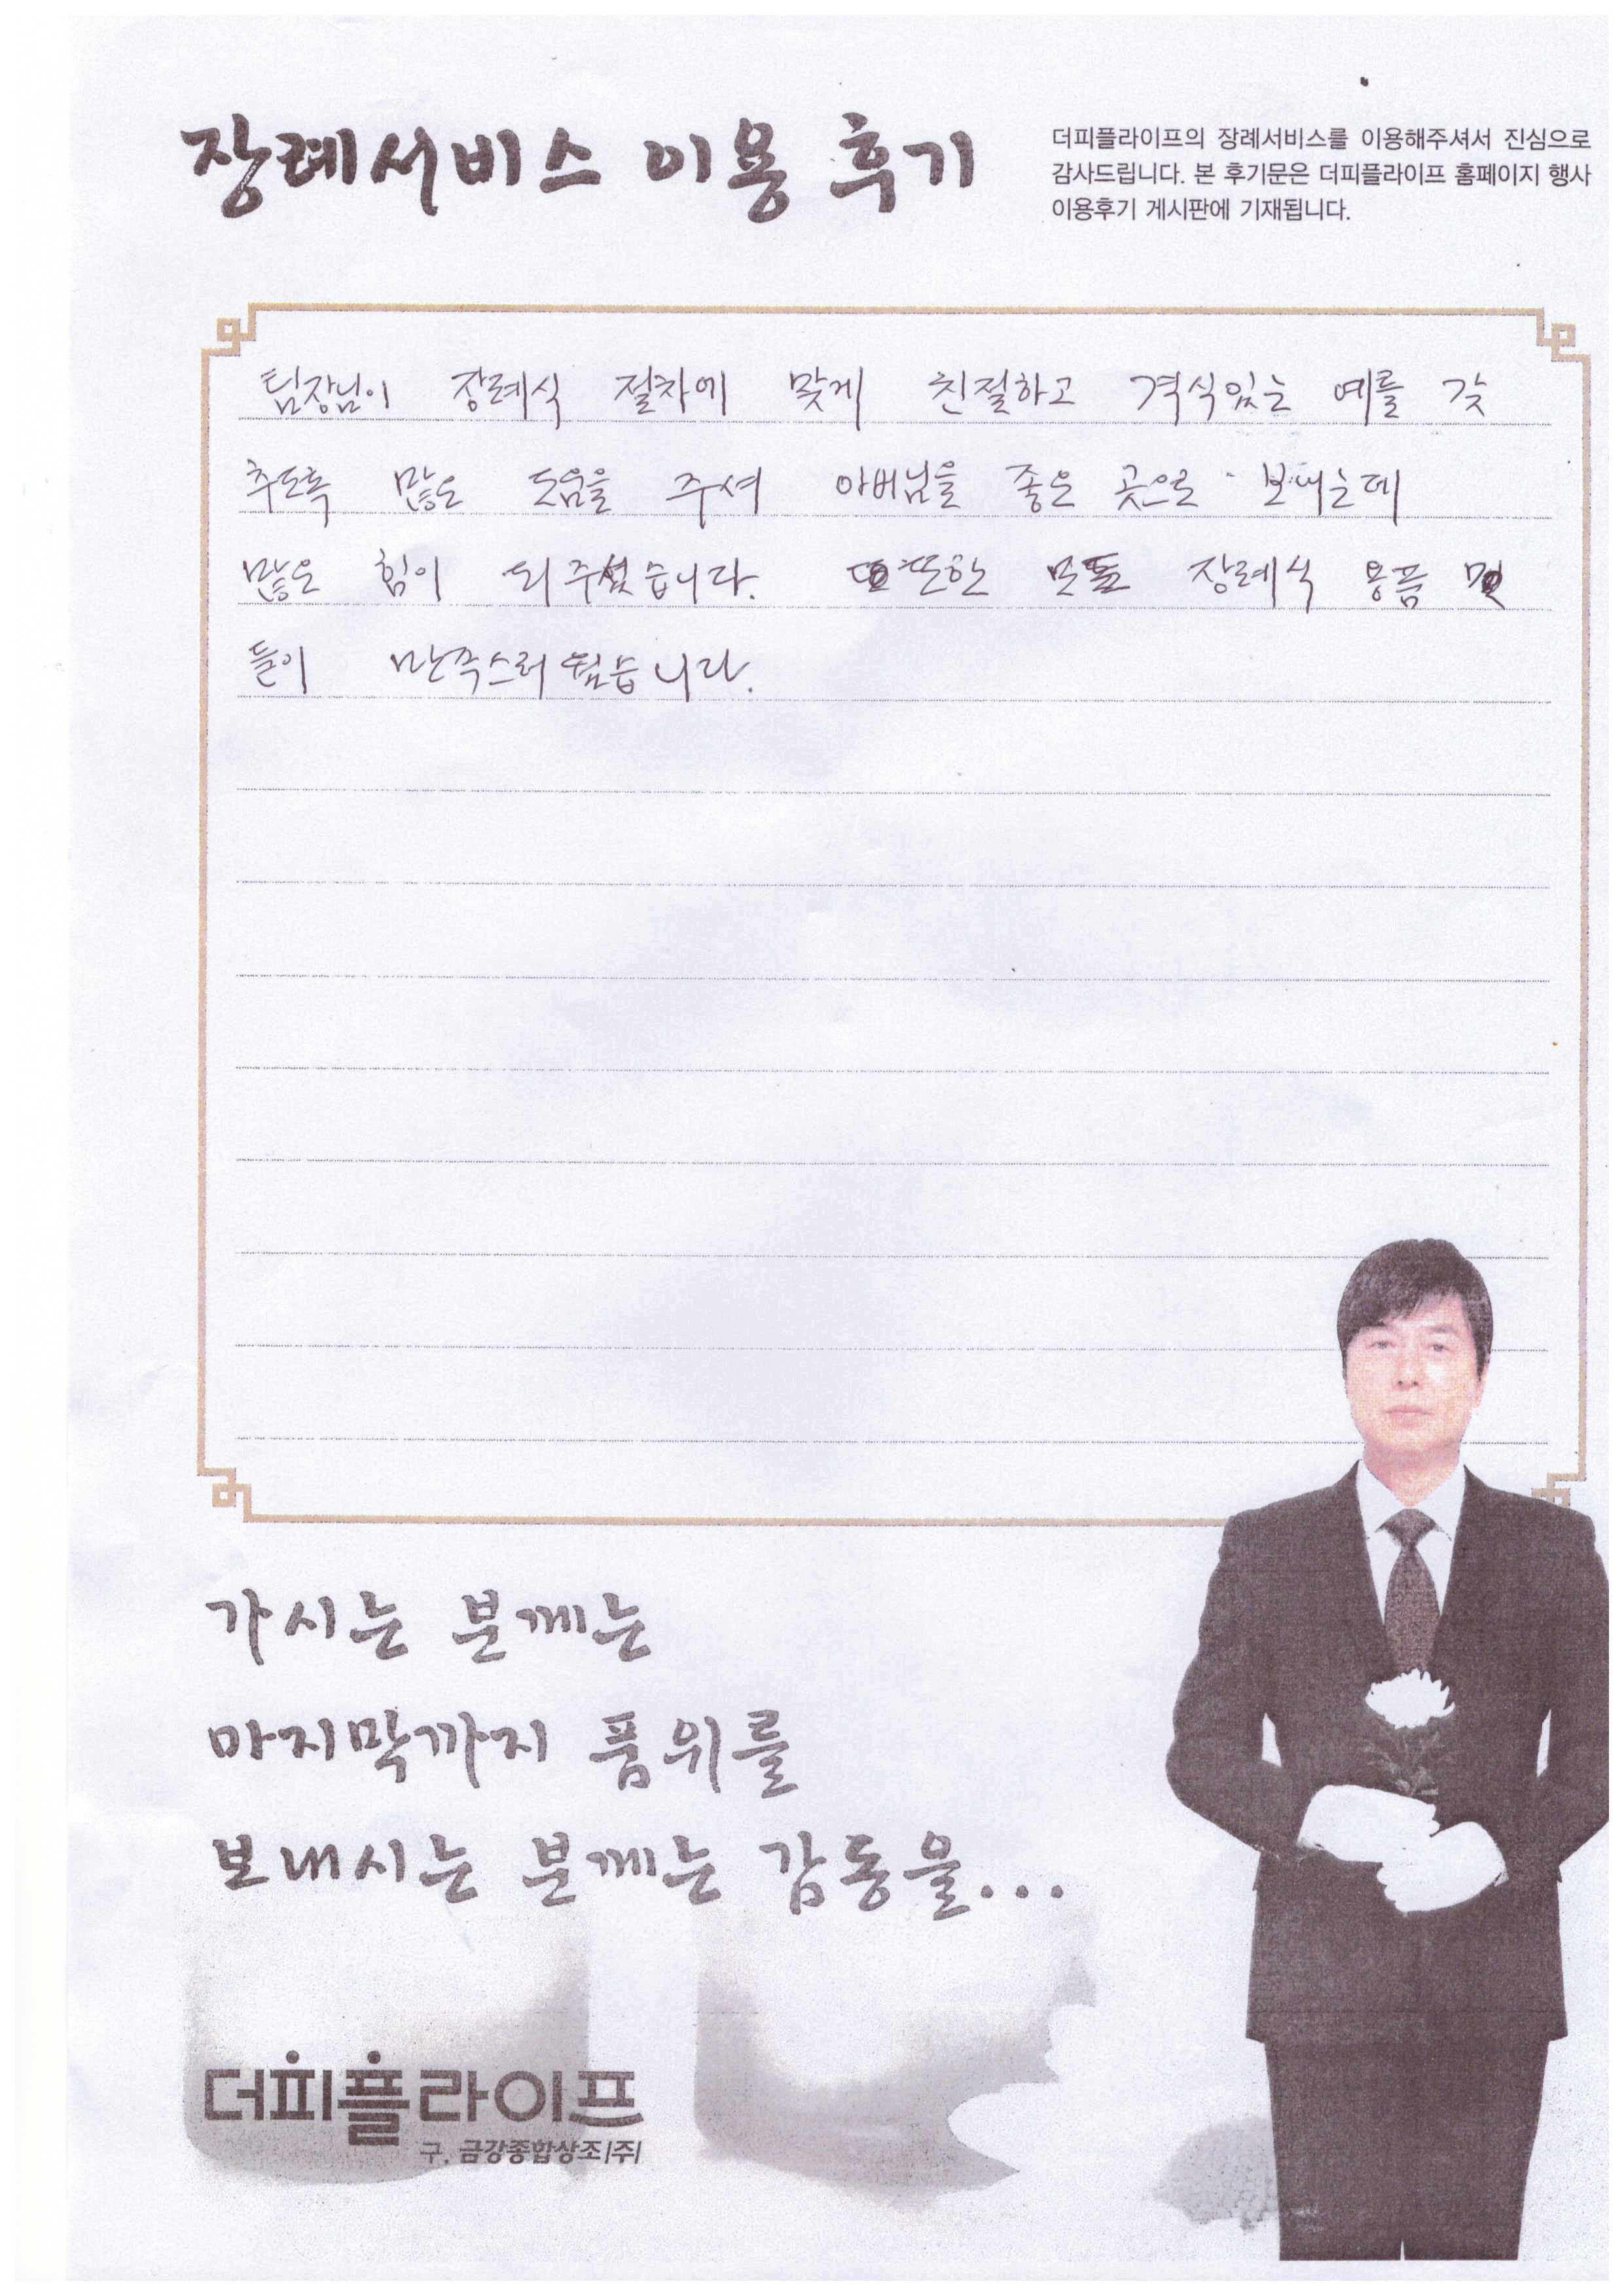 장례서비스 이용 후기
더피플라이프의 장례서비스를 이용해주셔서 진심으로
감사드립니다. 본 후기문은 더피플라이프 홈페이지 행사
이용후기 게시판에 기재됩니다.
팀장님이 장례식 절차에 맞게 친절하고 격식있는 예를 갖
추도록 많은 도움을 주셔 아버님을 좋은 곳으로 보내는데
많은 힘이 되주셨습니다. 또한 모든 장례식 용품
들이 만족스러웠습니다.
가시는 분께는
마지막까지 품위를
보내시는 분께는 감동을...
더피플라이프
구. 금강종합상조(주)